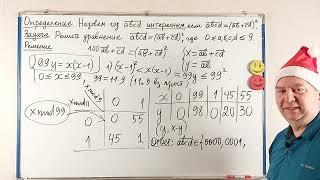 Определение. Назовем год abcd интересным, если abcd = (ab+cd)².
Задача. Решить уравнение abcd = (ab+cd)², где 0 ≤ a,b,c,d ≤ 9
Решение
100ab + cd = (ab + cd)²
{ x = ab + cd
y = ab
99y = x(x-1)
1) (x-1)² < x(x-1) ≤ 99
0 ≤ x ≤ 99
99 = 11·9
x mod 99
x mod 11
x mod 9
0 1
0 0 55
1 45 1
x 0 99 1 45 55
y 0 98 0 20 30
(y, x-y)
Ответ: abcd ∈ {0000, 0001,